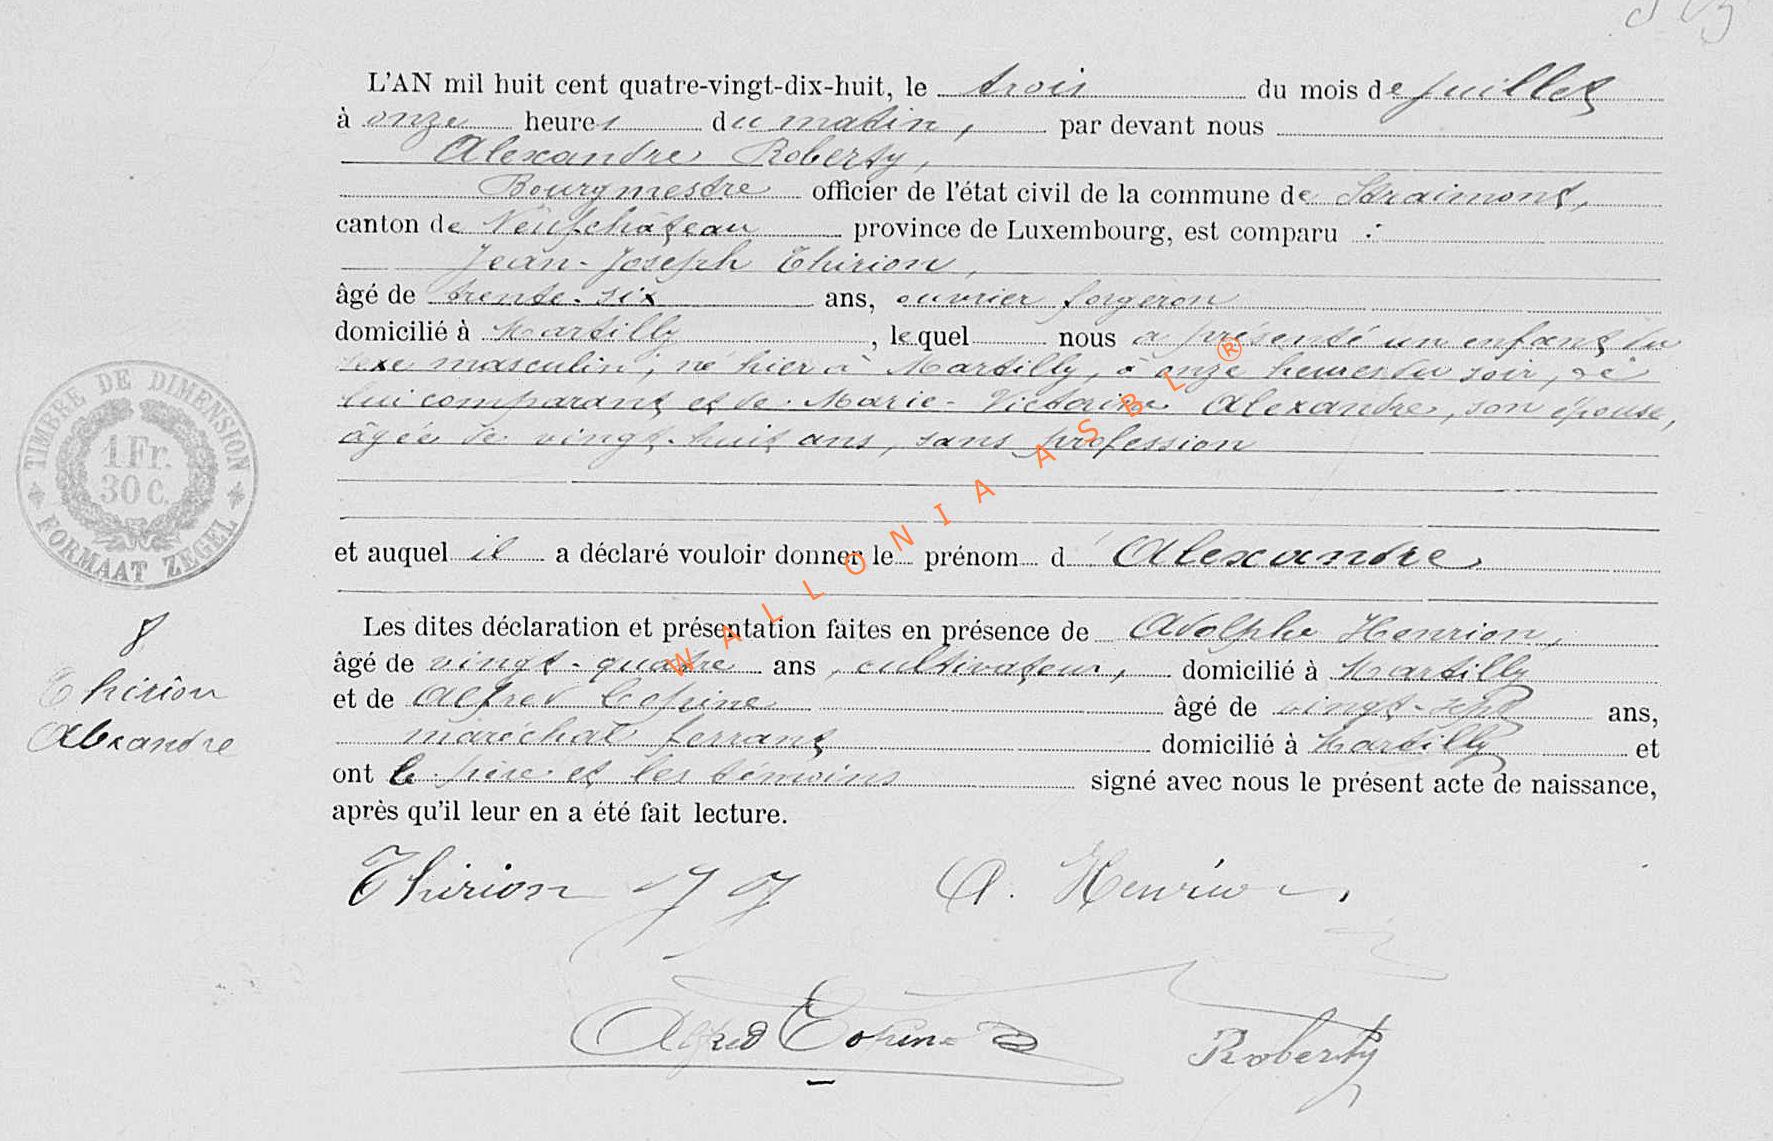 L'AN mil huit cent quatre-vingt-dix-huit, le trois du mois de Juillet
à onze heures du matin, par devant nous
Alexandre Roberty,
Bourgmestre officier de l'état civil de la commune de Straimont,
canton de Neufchâteau province de Luxembourg, est comparu :
Jean-Joseph Thirion,
âgé de trente-six ans, ouvrier forgeron
domicilié à Martilly, lequel nous a présenté un enfant du
sexe masculin, né hier à Martilly, à onze heures du soir, de
lui comparant et de Marie-Victorine Alexandre, son épouse,
âgée de vingt-huit ans, sans profession
et auquel il a déclaré vouloir donner le prénom d' Alexandre
Les dites déclaration et présentation faites en présence de Adolphe Henrion,
âgé de vingt-quatre ans, cultivateur, domicilié à Martilly
et de Alfred Copine âgé de vingt-sept ans,
maréchal ferrant domicilié à Martilly et
ont le père et les témoins signé avec nous le présent acte de naissance,
après qu'il leur en a été fait lecture.
TIMBRE DE DIMENSION
1 Fr.
30 C.
FORMAAT ZEGEL
8
Thirion
Alexandre
Thirion JJ A. Henrion
Alfred Copine Roberty
WALLONIA ASBL ®